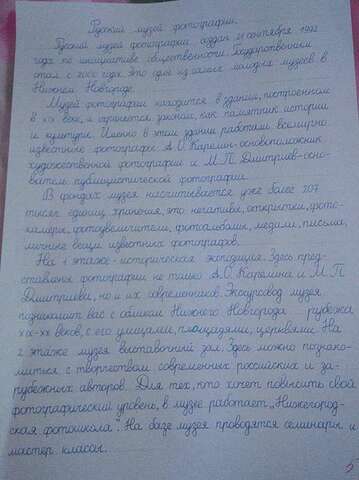 Русский музей фотографии.
Русский музей фотографии создан 21 сентября 1992
года по инициативе общественности. Государственным
стал с 2000 года. Это один из самых молодых музеев в
Нижнем Новгороде.
Музей фотографии находится в здании, построенном
в XIX веке, и охраняется законом, как памятник истории
и культуры. Именно в этом здании работали всемирно
известные фотографы: А.О. Карелин-основоположник
художественной фотографии и М.П. Дмитриев-осно-
ватель публицистической фотографии.
В фондах музея насчитывается уже более 207
тысяч единиц хранения, это негативы, открытки, фото-
камеры, фотоувеличители, фотоальбомы, медали, письма,
личные вещи известных фотографов.
На 1 этаже - историческая экспозиция. Здесь пред-
ставлены фотографии не только А.О. Карелина и М.П.
Дмитриева, но и их современников. Экскурсовод музея
познакомит вас с обликом Нижнего Новгорода рубежа
XIX-XX веков, с его улицами, площадями, церквями. На
2 этаже музея выставочный зал. Здесь можно познако-
миться с творчеством современных российских и за-
рубежных авторов. Для тех, кто хочет повысить свой
фотографический уровень, в музее работает „Нижегород-
ская фотошкола". На базе музея проводятся семинары и
мастер классы.